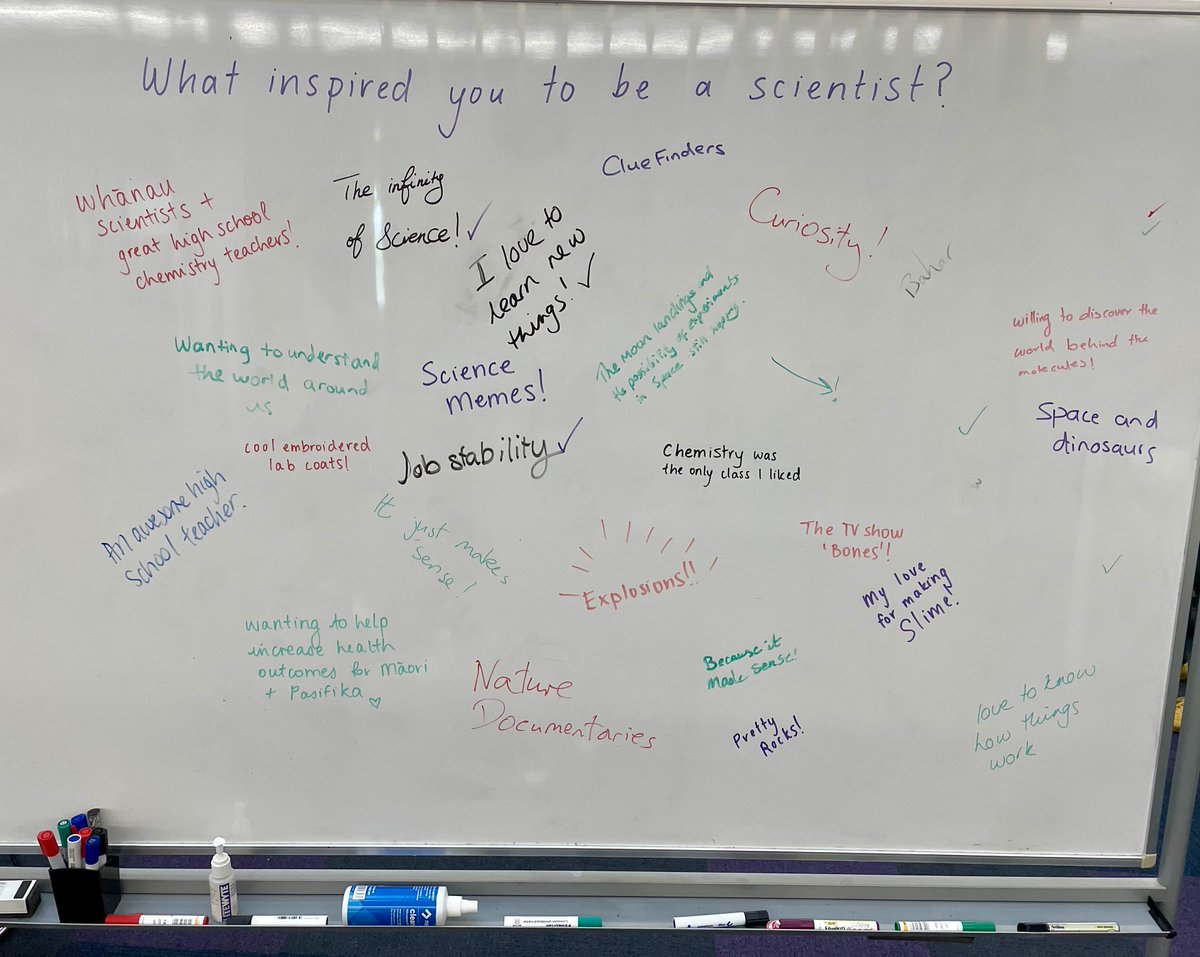 What inspired you to be a scientist?
ClueFinders
Whānau
scientists +
great high school
chemistry teachers!
The infinity
of Science!
I love to
learn new
things!
Curiosity!
Bahar
The Moon landings and
the possibility of experiments
in Space still happens.
willing to discover the
world behind the
molecules!
Wanting to understand
the world around
us
Science
Memes!
Space and
dinosaurs
cool embroidered
lab coats!
Job stability
Chemistry was
the only class I liked
An awesome high
school teacher.
It just makes
sense!
Explosions!!
The TV show
'Bones'!
My love
for making
Slime!
wanting to help
increase health
outcomes for Māori
+ Pasifika
Nature
Documentaries
Because it
made sense!
Pretty
Rocks!
love to know
how things
work